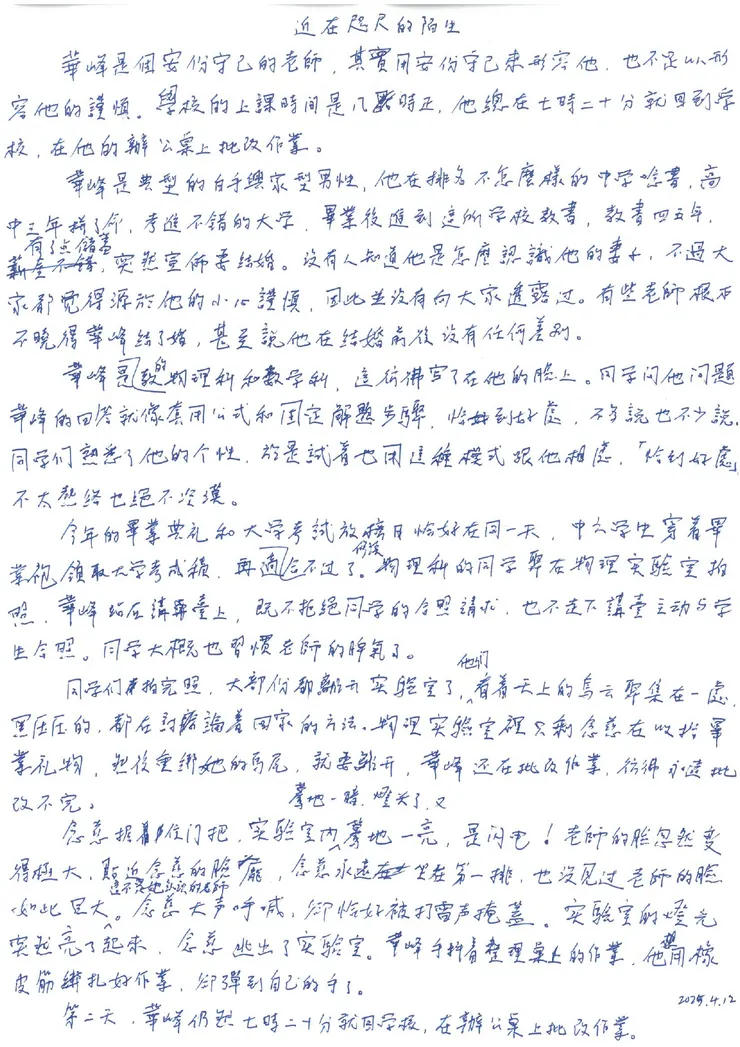 近在咫尺的陌生
華峰是個安份守己的老師，其實用安份守己來形容他，也不足以形
容他的謹慎。學校的上課時間是八時正，他總在七時二十分就回到學
校，在他的辦公桌上批改作業。
華峰是典型的白手興家型男性，他在排名不怎麼樣的中学唸書，高
中三年拼了命，考進不錯的大学，畢業後進到這所学校教書，教書四五年，
有了点儲蓄
突然宣佈要結婚。没有人知道他是怎麼認識他的妻子，不過大
家都覚得源於他的小心謹慎，因此並没有向大家透露过。有些老師根本
不曉得華峰結了婚，甚至說他在結婚前後没有任何差別。
華峰是教的物理科和数学科，這彷彿写了在他的脸上。同学问他问題
華峰的回答就像套用公式和固定解題步驟，恰好到好處，不多説也不少説。
同学们熟悉了他的个性，於是試着也用這種模式跟他相處，「恰到好處」
不太熱絡也絕不冷漠。
今年的畢業典礼和大学考試放榜日恰好在同一天，中六学生穿着畢
業袍領取大学考成績，再適合不过了。物理科的同学聚在物理实驗室拍
照，華峰站在講臺上，既不拒絕同学的合照請求，也不走下講壹主動与学
生合照。同学大概也習慣老師的脾氣了。
同学们拍完照，大部份都離开实驗室了，他们看着天上的烏云聚集在一處，
黑压压的，都在討論着回家的方法。物理实驗室裡只剩念慈在收拾畢
業礼物，然後重綁她的馬尾，就要離开，華峰还在批改作業，彷彿永遠批
改不完。
驀地一暗，燈关了，又
念慈握住门把，实驗室內驀地一亮，是闪电！老師的脸忽然变
得極大，貼近念慈的脸龐，念慈永遠坐在第一排，也没見过老師的脸
這不是她認識的老師
如此巨大。念慈大声呼喊，卻恰好被打雷声掩蓋。实驗室的燈光
突然亮了起來，念慈逃出了实驗室。華峰手抖着整理桌上的作業，他想用橡
皮筋綁扎好作業，卻彈到自己的手了。
2025.4.12
第二天，華峰仍然七時二十分就回学校，在辦公桌上批改作業。